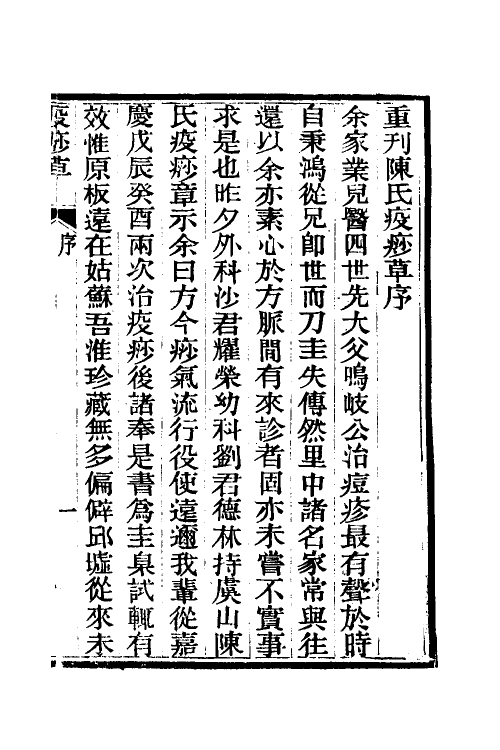 重刊陳氏疫痧草序
余家業兒醫四世先大父鳴岐公治痘疹最有聲於時
自秉鴻從兄卽世而刀圭失傳然里中諸名家常與往
還以余亦素心於方脈間有來診者固亦未嘗不實事
求是也昨夕外科沙君耀榮幼科劉君德林持虞山陳
氏疫痧章示余曰方今痧氣流行役使遠邇我輩從嘉
慶戊辰癸酉兩次治疫痧後諸奉是書爲圭臬試輒有
效惟原板遠在姑蘇吾淮珍藏無多偏僻邱墟從來未
疫痧草
序
一